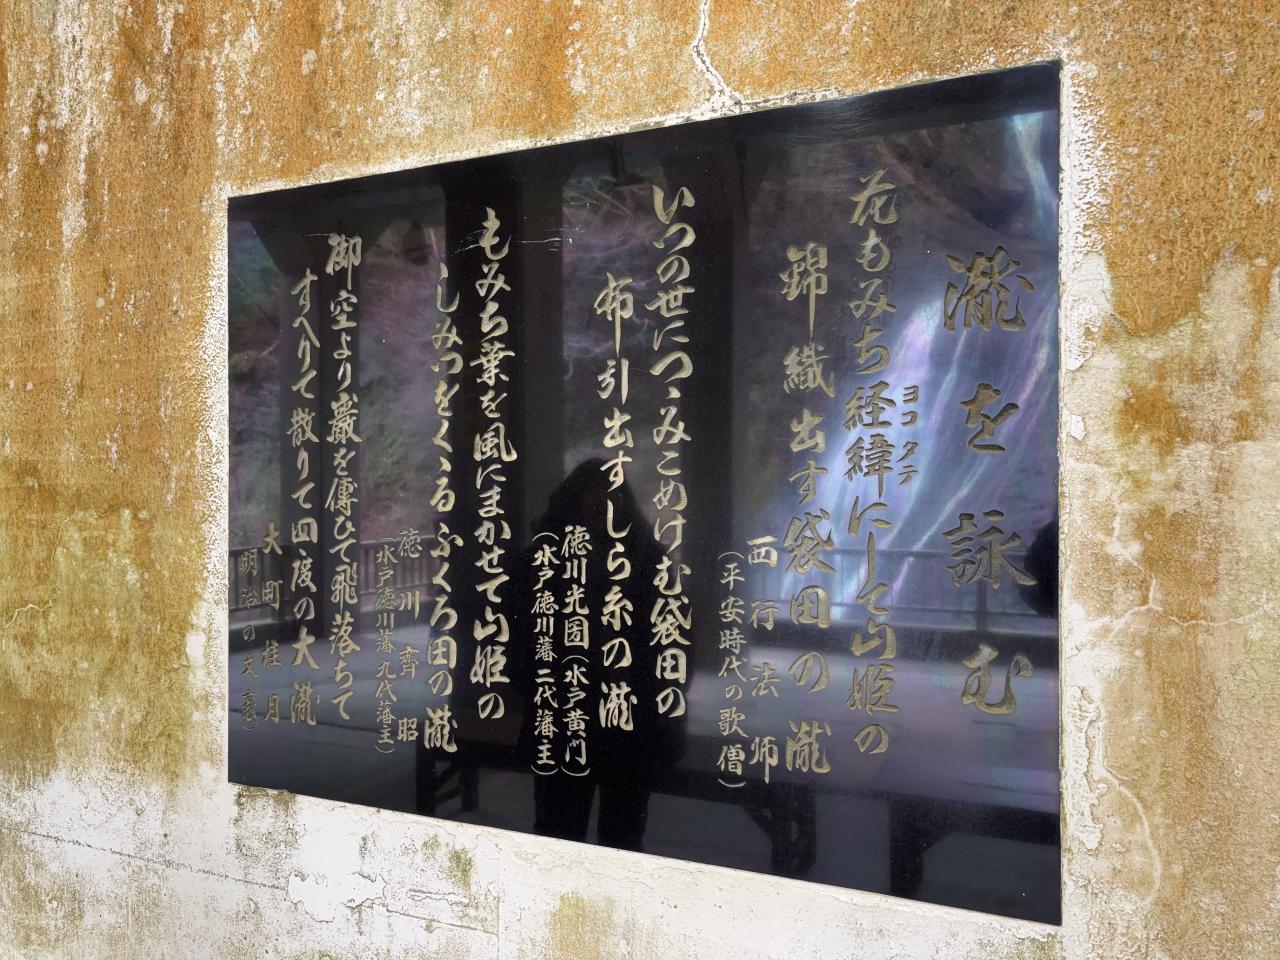 瀧を詠む
花もみち経緯にして山姫の
ヨコタテ
錦織出す袋田の瀧
西行法師
（平安時代の歌僧）
いつの世につゝみこめけむ袋田の
布引出すしら糸の瀧
徳川光圀（水戸黄門）
（水戸徳川藩二代藩主）
もみち葉を風にまかせて山姫の
しみつをくゝるふくろ田の瀧
徳川齊昭
（水戸徳川藩九代藩主）
御空より巖を傳ひて飛落ちて
すへりて散りて四度の大瀧
大町桂月
（明治の文豪）